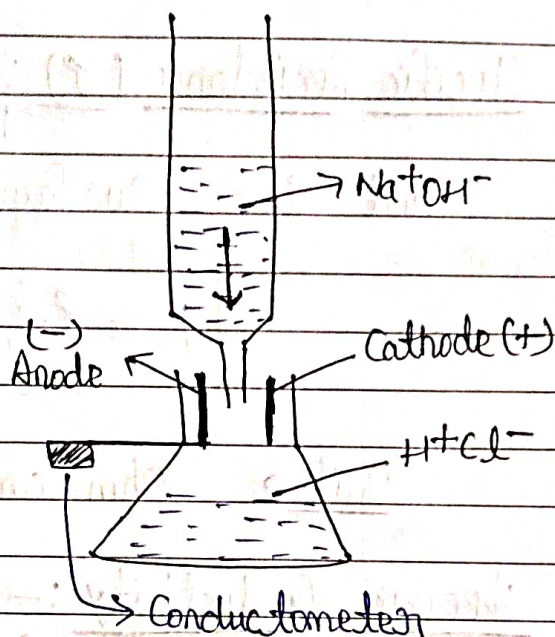 Na⁺OH⁻
(-)
Anode
Cathode (+)
H⁺Cl⁻
Conductometer